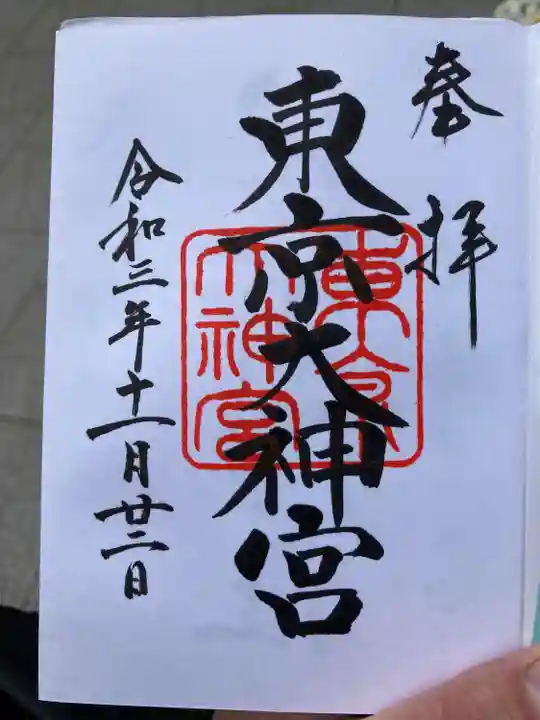 奉拝
東京大神宮
東京大神宮
令和三年十一月廿二日